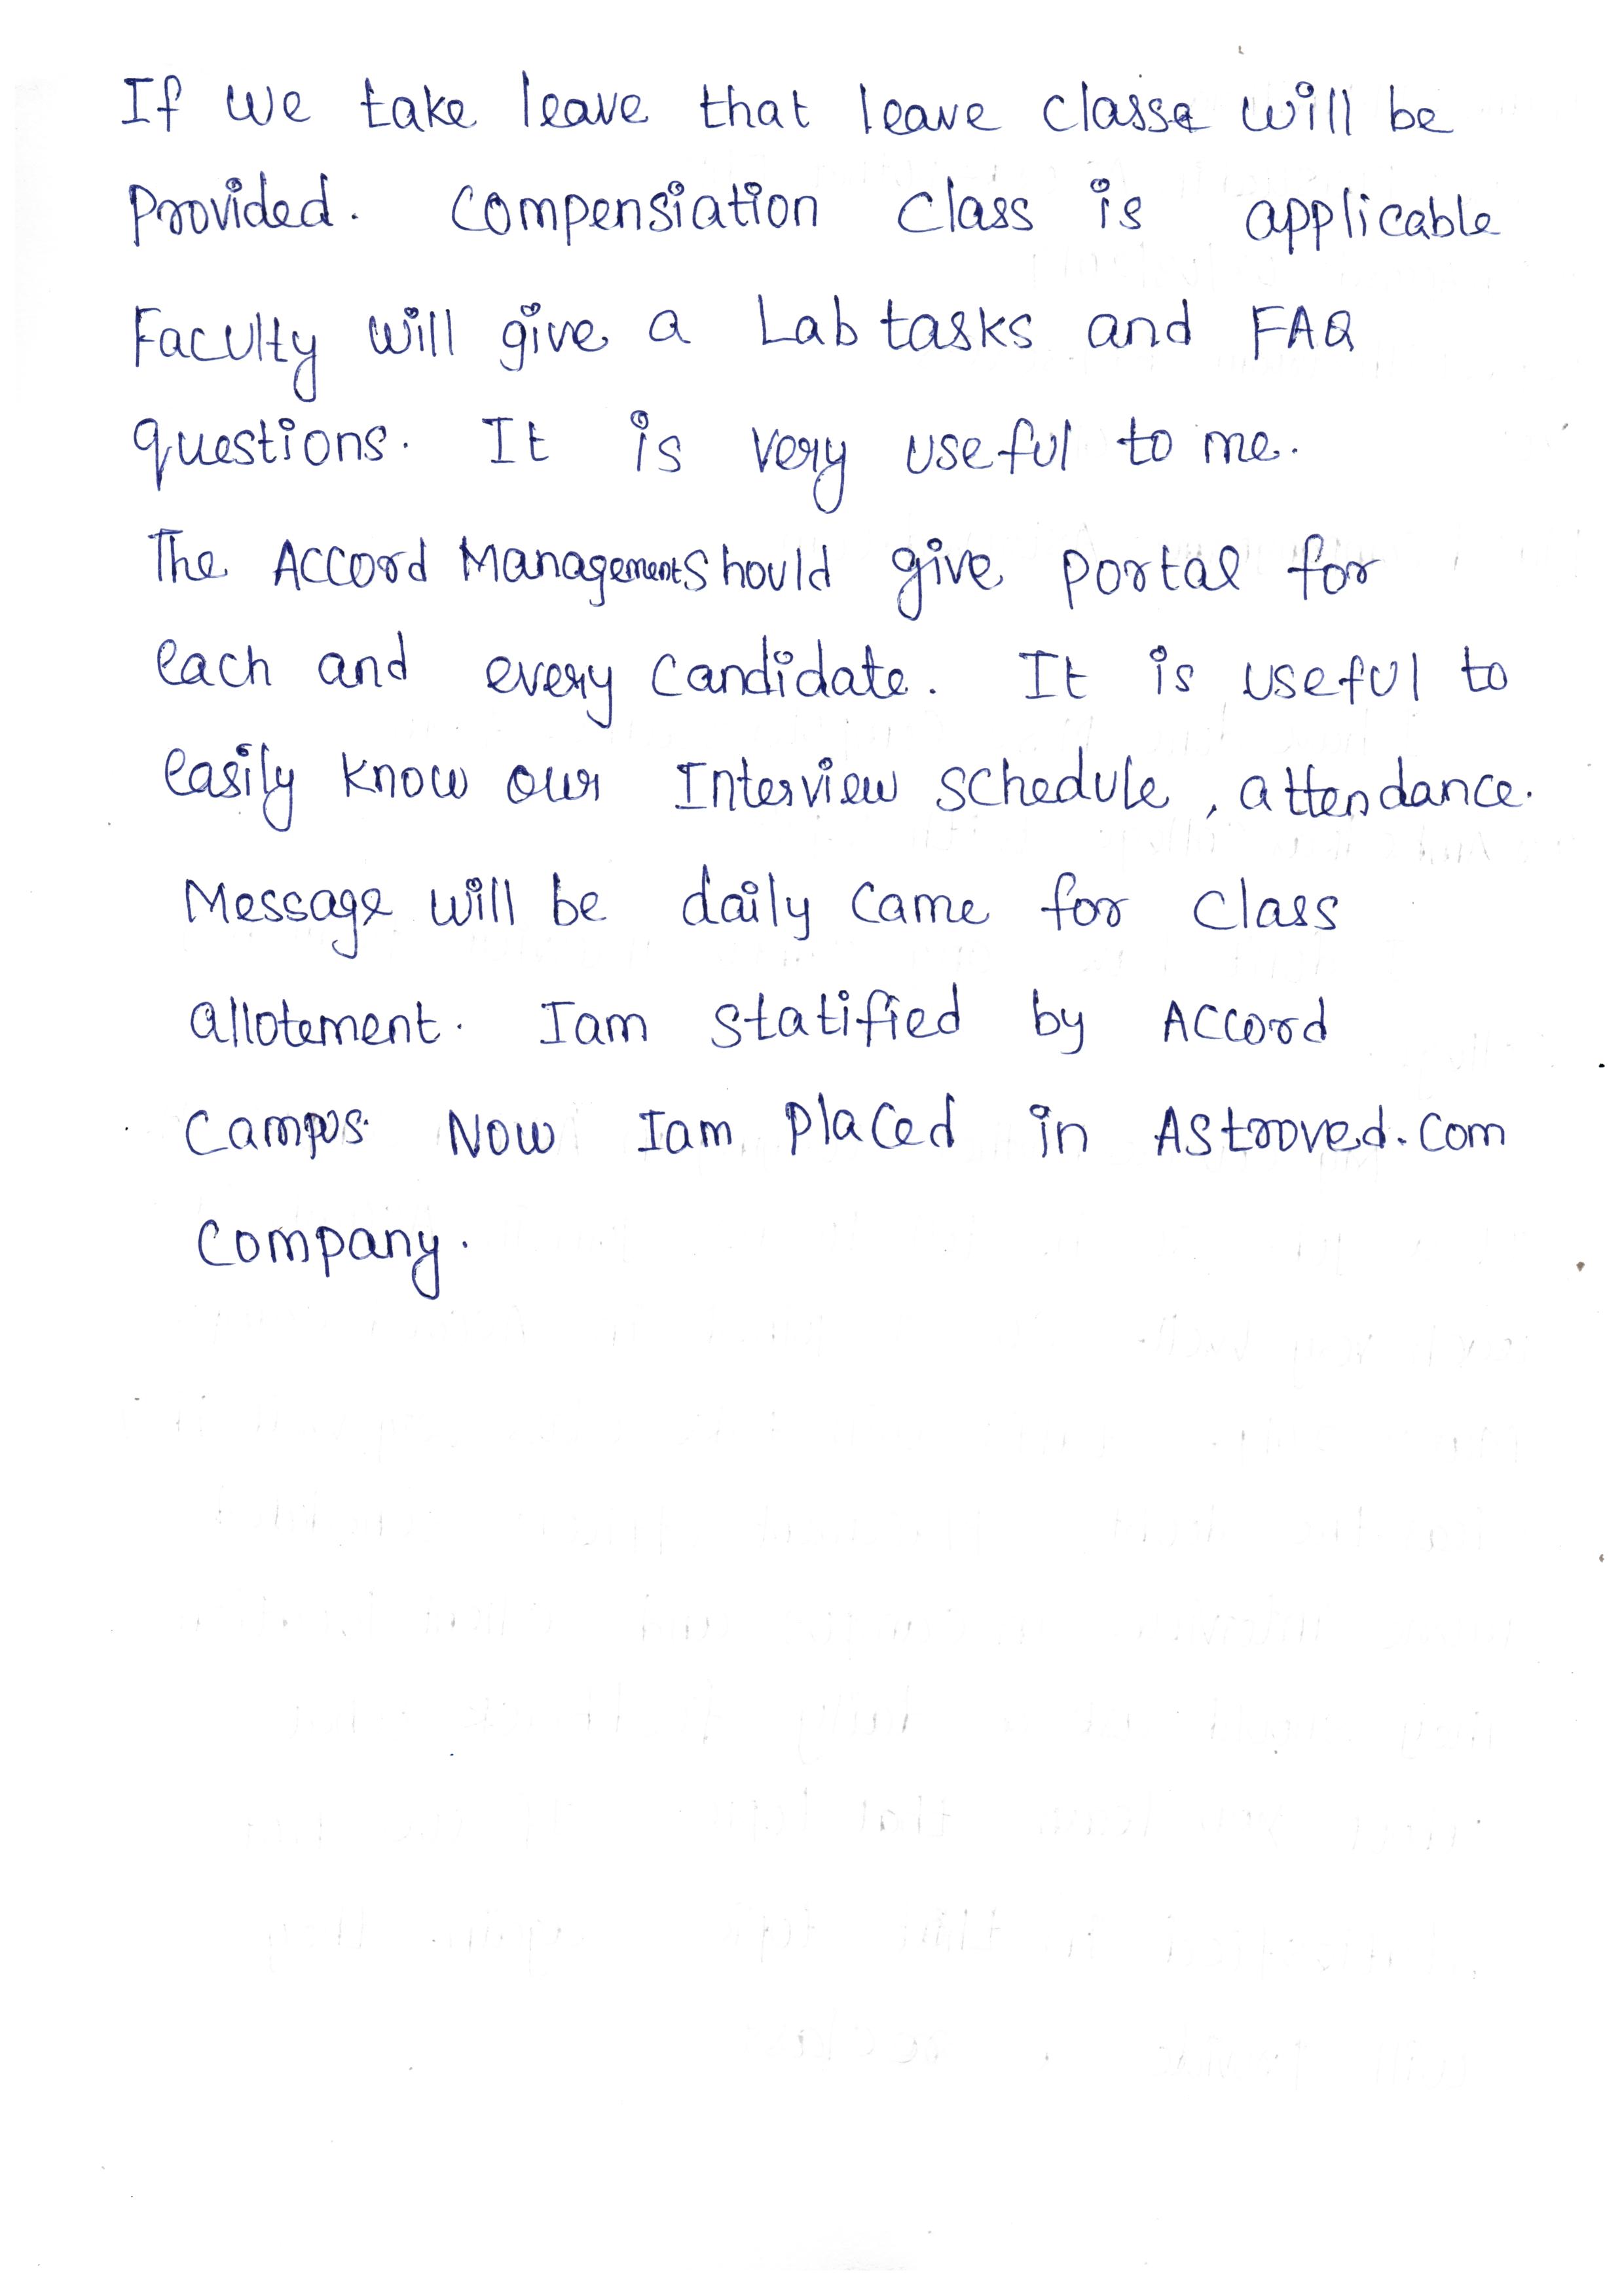 If we take leave that leave classe will be
Provided. Compensiation class is applicable
Faculty will give a Lab tasks and FAQ
questions. It is very useful to me.
The Accord Management should give portal for
each and every candidate. It is useful to
easily know our Interview schedule, attendance.
Message will be daily came for class
allotement. Iam statified by Accord
Campus. Now Iam placed in Astroved.com
Company.